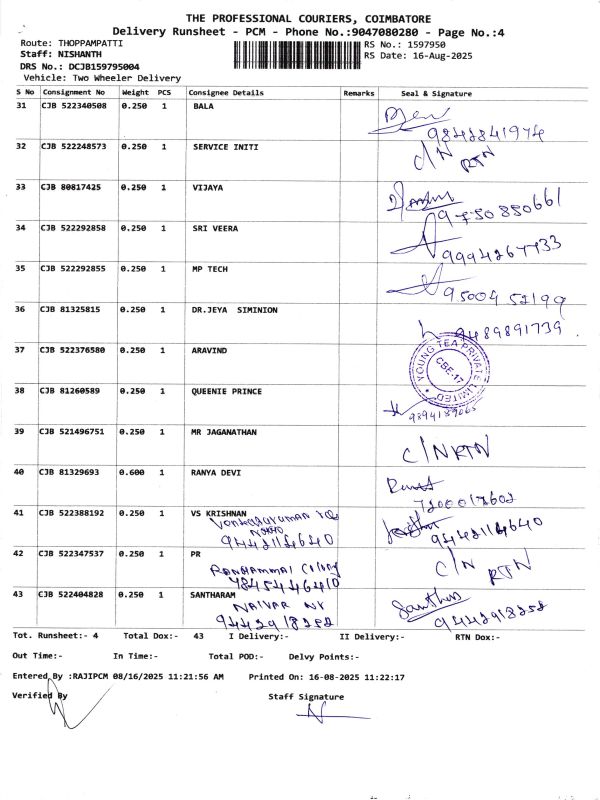 THE PROFESSIONAL COURIERS, COIMBATORE
Delivery Runsheet - PCM - Phone No.:9047080280 - Page No.:4
Route: THOPPAMPATTI RS No.: 1597950
Staff: NISHANTH RS Date: 16-Aug-2025
DRS No.: DCJB159795004
Vehicle: Two Wheeler Delivery
S No Consignment No Weight PCS Consignee Details Remarks Seal & Signature
31 CJB 522340508 0.250 1 BALA
9842841974
32 CJB 522248573 0.250 1 SERVICE INITI C/N RTN
33 CJB 80817425 0.250 1 VIJAYA
9750850661
34 CJB 522292858 0.250 1 SRI VEERA
9994267733
35 CJB 522292855 0.250 1 MP TECH
95004 52199
36 CJB 81325815 0.250 1 DR.JEYA SIMINION
9489891739
37 CJB 522376580 0.250 1 ARAVIND
YOUNG TEA PRIVATE LIMITED
CBE-17
38 CJB 81260589 0.250 1 QUEENIE PRINCE
9894189065
39 CJB 521496751 0.250 1 MR JAGANATHAN C/N RTN
40 CJB 81329693 0.600 1 RANYA DEVI
7200017602
41 CJB 522388192 0.250 1 VS KRISHNAN
9442114640 9442114640
42 CJB 522347537 0.250 1 PR C/N RTN
7845446410
43 CJB 522404828 0.250 1 SANTHARAM Santhus
9442918252 9442918252
Tot. Runsheet:- 4 Total Dox:- 43 I Delivery:- II Delivery:- RTN Dox:-
Out Time:- In Time:- Total POD:- Delvy Points:-
Entered By :RAJIPCM 08/16/2025 11:21:56 AM Printed On: 16-08-2025 11:22:17
Verified By Staff Signature